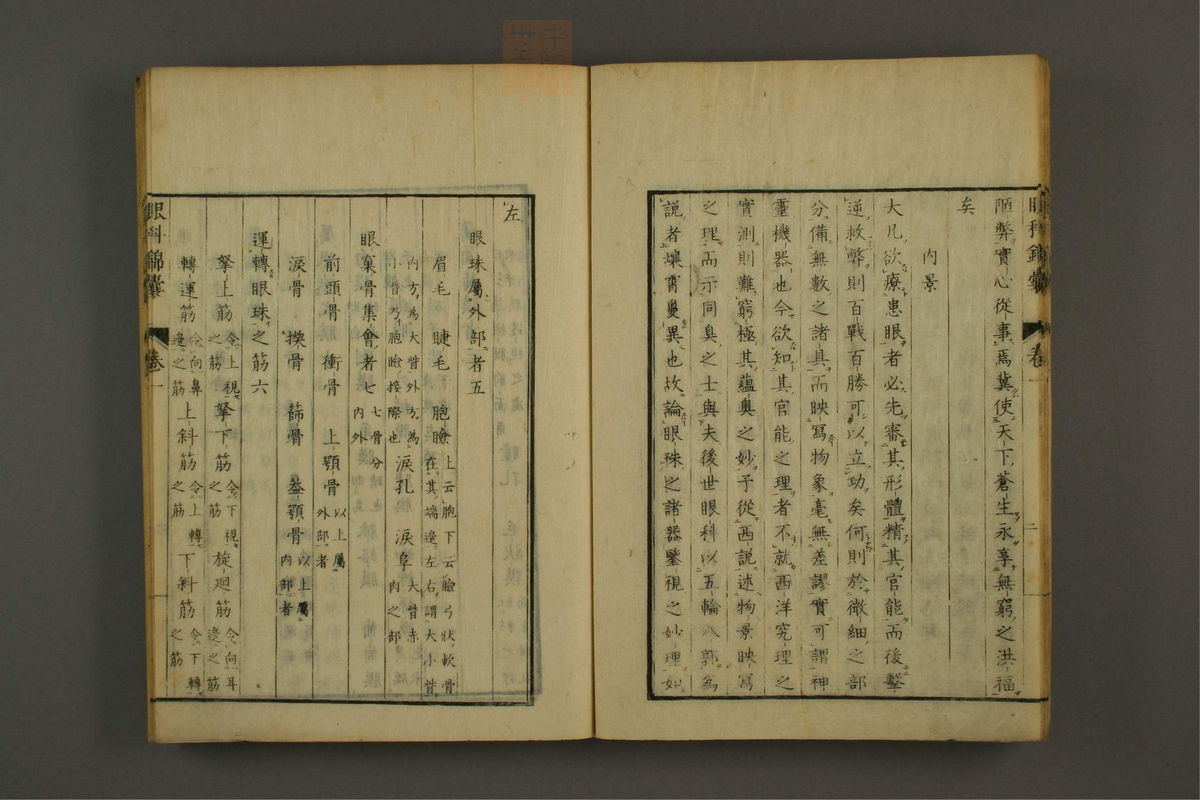 陋弊實心從事焉冀使天下蒼生永享無窮之洪福
矣
內景
大凡欲療患眼者必先審其形體精其官能而後擊
逆救弊則百戰百勝可以立功矣何則於微細之部
分備無數之諸具而映寫物象毫無差謬實可謂神
靈機器也今欲知其官能之理者不就西洋究理之
實測則難窮極其蘊奧之妙予從西說述物景映寫
之理而示同臭之士與夫後世眼科以五輪八郭為
說者壤霄敻異也故論眼珠之諸器鑒視之妙理如
眼科錦囊 卷一 二
左
眼珠屬外部者五
眉毛 睫毛 胞瞼 上云胞下云瞼弓狀軟骨在其端邊左右謂大小眥
內方為大眥外方為小眥乃胞瞼接際也 淚孔 淚阜 大眥赤肉之部
眼窠骨集會者七 七骨分內外
前頭骨 衝骨 上顎骨 以上屬外部者
淚骨 楔骨 篩骨 蓋顎骨 以上屬內部者
運轉眼珠之筋六
拏上筋 令上視之筋 拏下筋 令下視之筋 旋廻筋 令向耳邊之筋
轉運筋 令向鼻邊之筋 上斜筋 令上轉之筋 下斜筋 令下轉之筋
眼科錦囊 卷一